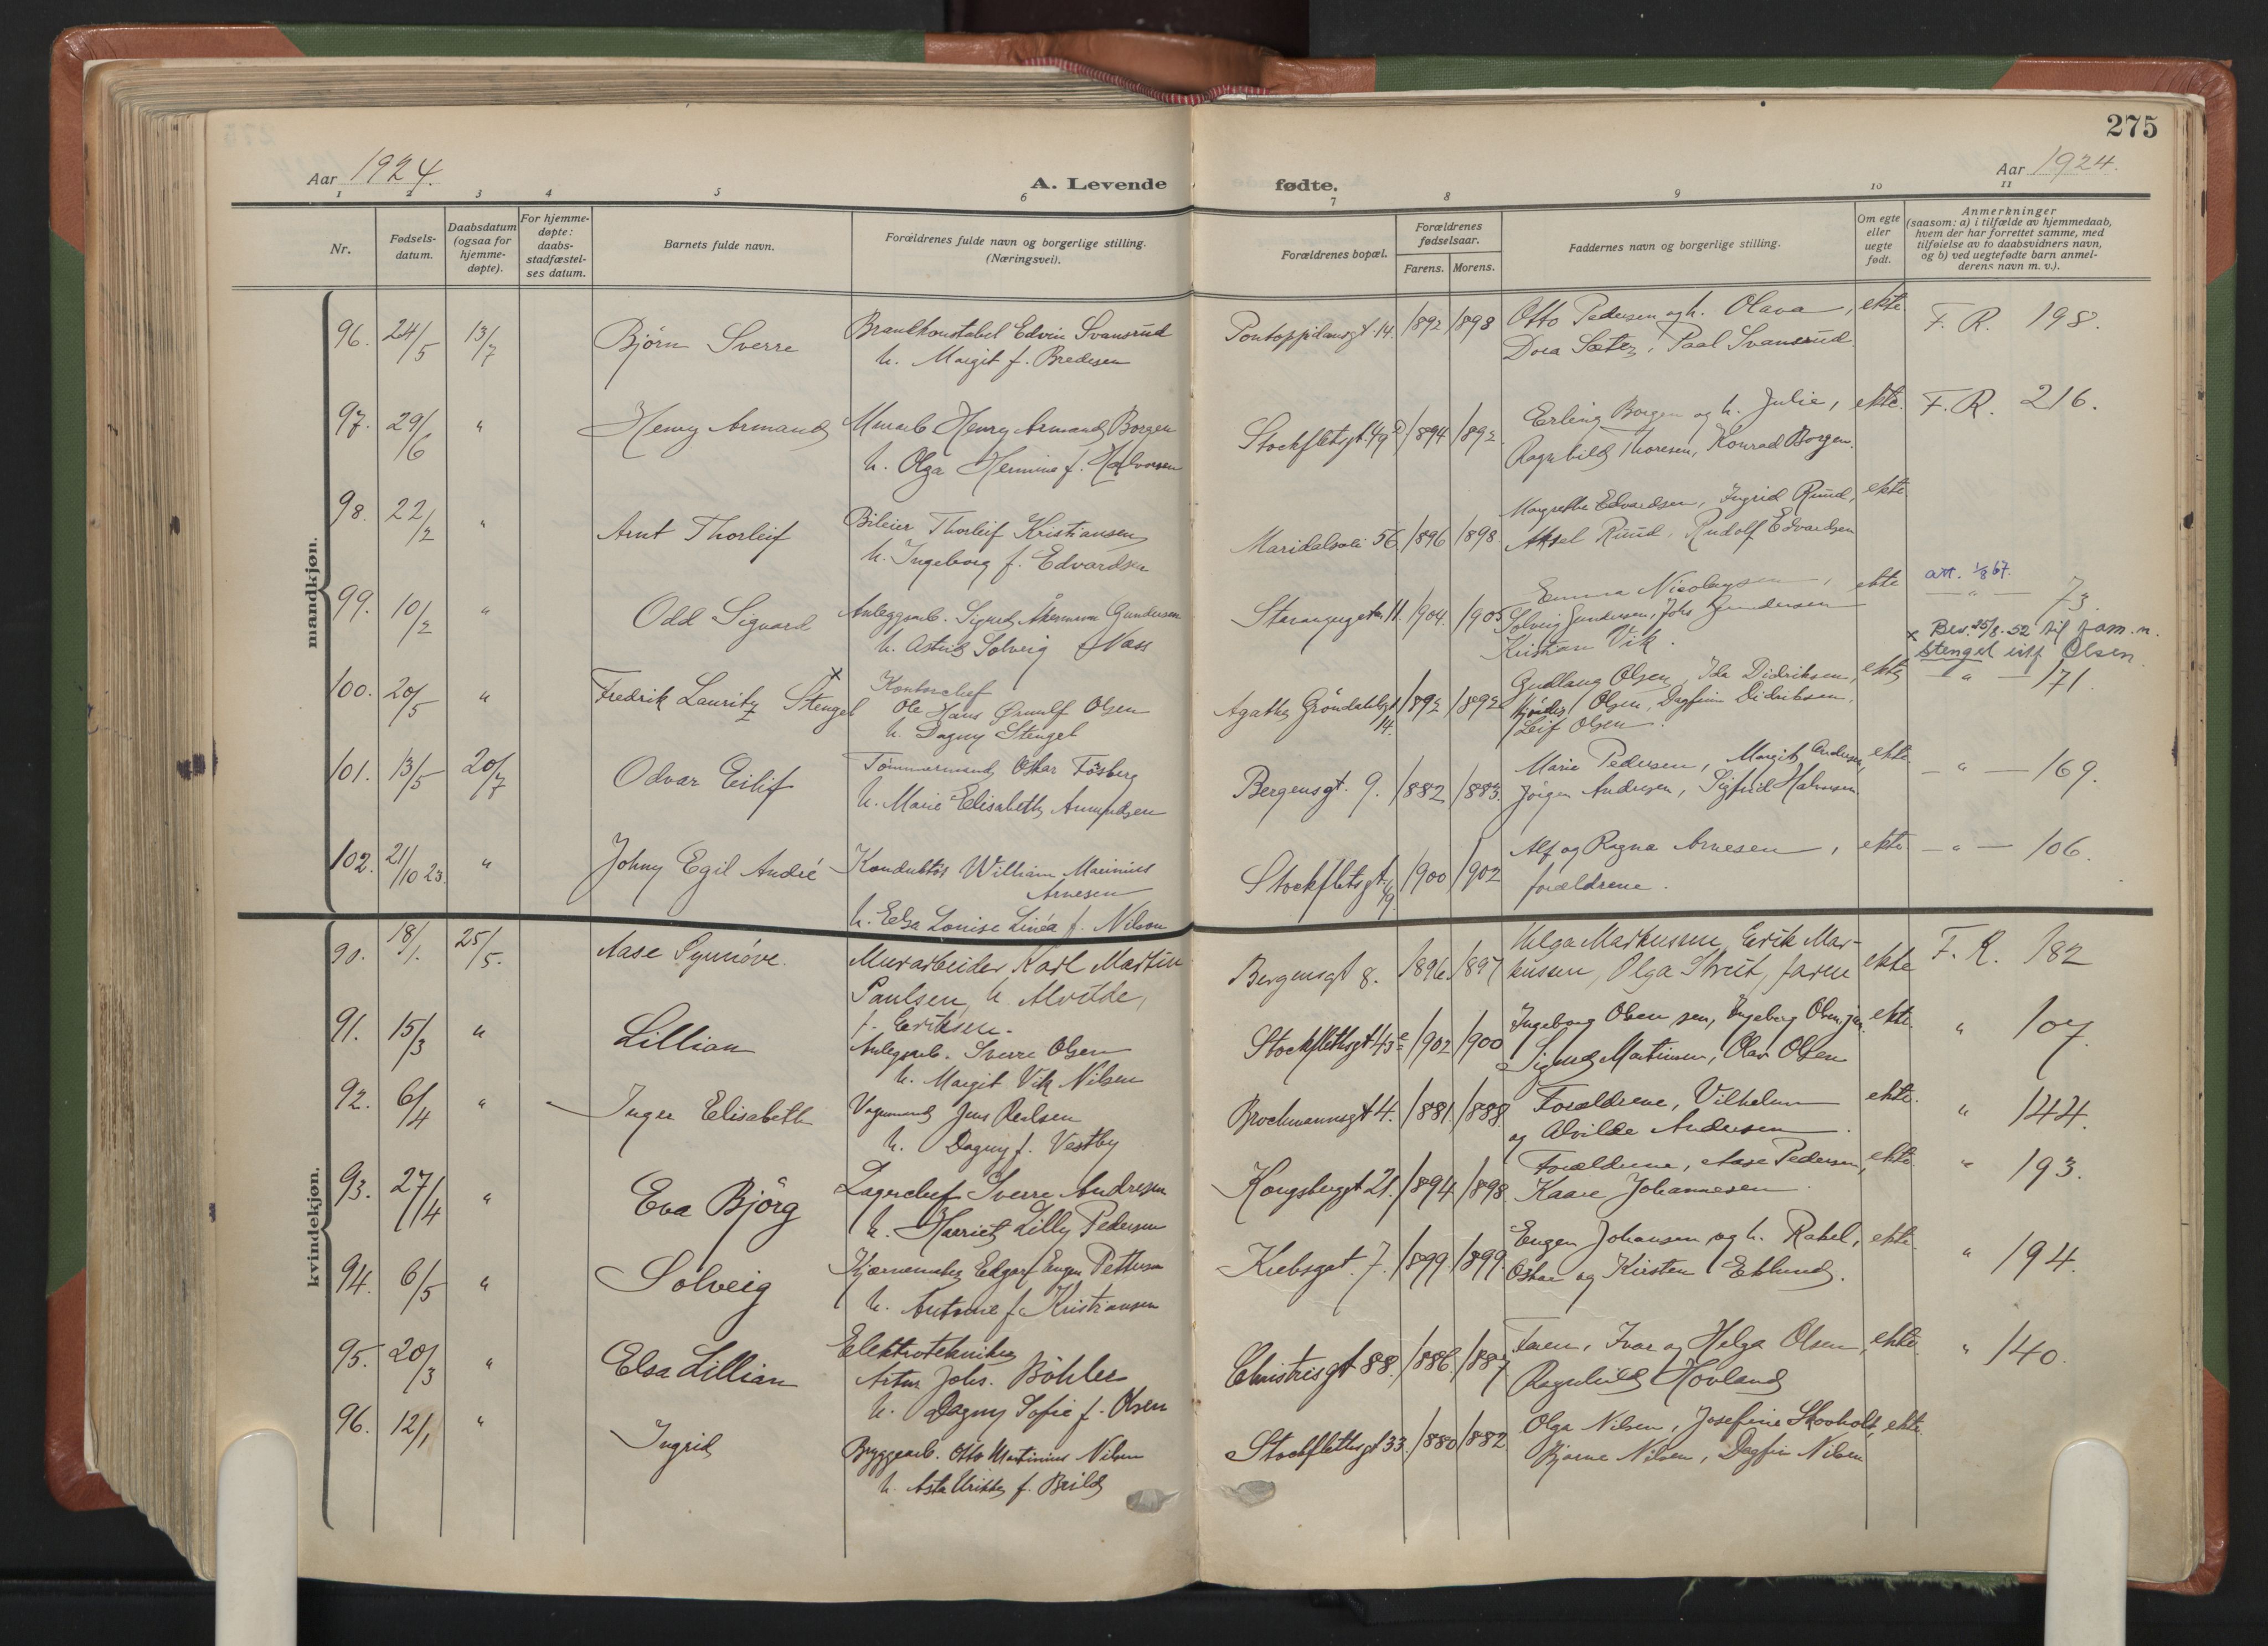 275
Aar 1924.
A. Levende fødte.
Aar 1924.
1 2 3 4 5 6 7 8 9 10 11
Nr.
Fødsels-
datum.
Daabsdatum
(ogsaa for
hjemme-
døpte).
For hjemme-
døpte:
daabs-
stadfæstel-
ses datum.
Barnets fulde navn.
Forældrenes fulde navn og borgerlige stilling.
(Næringsvei).
Forældrenes bopæl.
Forældrenes
fødselsaar.
Farens. Morens.
Faddernes navn og borgerlige stilling.
Om egte
eller
uegte
født.
Anmerkninger
(saasom: a) i tilfælde av hjemmedaab,
hvem der har forrettet samme, med
tilføielse av to daabsvidners navn,
og b) ved uegtefødte barn anmel-
derens navn m. v.).
mandkjøn.
96. 24/5 13/7 Bjørn Sverre
Brandkonstabel Edvin Svansrud
h. Margit f. Bredesen
Pontoppidansgt. 14. 1892 1898
Otto Pedersen og h. Olava, ekte
Dora Sæter, Paal Svansrud.
F. R. 198.
97. 29/6 " Henry Armand
Murarb. Henry Armand Borgen
h. Olga Hermine f. Halvorsen
Stockfletsgt. 49 1894 1892.
Erling Borgen og h. Julie, ekte.
Ragnhild Thoresen, Konrad Borgen.
F. R. 216.
98. 22/2 " Arnt Thorleif
Bileier Thorleif Kristiansen
h. Ingeborg f. Edvardsen
Maridalsvei 56 1896 1898.
Margrethe Edvardsen, Ingrid Ruud, ekte
Aksel Ruud, Rudolf Edvardsen
99. 10/2 " Odd Sigvard
Anleggsarb. Sigurd Åkermann Gundersen
h. Astrid Solveig Næss
Stavangergaten 11. 1904. 1905
Emma Nicolaysen, ekte
Solveig Gundersen, Johs. Gundersen
Kristian Vik.
att. 1/8 67.
— " — 73.
x Bev. 25/8-52 til fam. n.
Stengel istf Olsen.
100. 20/5 " Fredrik Lauritz Stengel x
Kontorchef
Ole Hans Ørnulf Olsen
h. Dagny Stengel
Agathe Grøndahlsgt 14. 1892 1892
Gudlaug Olsen, Ida Didriksen, ekte
Olsen, Dagfinn Didriksen,
Leif Olsen.
— " — 171.
101. 13/5 20/7 Odvar Eilif
Tømmermand Oskar Fosberg
h. Marie Elisabeth Amundsen
Bergensgt. 9. 1882 1883.
Marie Pedersen, Margit Andersen, ekte
Jørgen Andersen, Sigfrid Halvorsen.
— " — 169.
102. 21/10 23. " Johny Egil André
Konduktør William Marinius
Arnesen
h. Elsa Louise Linéa f. Nilson
Stockfletsgt. 49. 1900 1902
Alf og Ragna Arnesen, ekte
forældrene.
— " — 106.
kvindekjøn.
90. 18/1. 25/5. Aase Synnöve.
Murarbeider Karl Martin
Paulsen, h. Alvilde,
f. Eriksen.
Bergensgt 8. 1896. 1897
Helga Markussen, Erik Mar-
kussen, Olga Streit, faren ekte
F. R. 182
91. 15/3 " Lillian
Anlegsarb. Sverre Olsen
h. Margit Vik Nilsen
Stockflethsgt 43 c 1902 1900
Ingeborg Olsen sen, Ingeborg Olsen, jun. ekte.
Sigurd Martinsen, Olav Olsen
" 107.
92. 6/4 " Inger Elisabeth
Vognmand Jens Paulsen
h. Dagny f. Vestby
Brochmannsgt 4. 1881. 1888.
Forældrene, Vilhelm ekte.
og Alvilde Andersen.
" 144.
93. 27/4 " Eva Björg
Lagerchef Sverre Andresen
h. Harriet Lilly Pedersen
Kongsberggt 21. 1894 1898
Forældrene, Aase Pedersen, ekte.
Kaare Johannesen.
" 193.
94. 6/5 " Solveig
Kjærnemaker Edgar Eugen Pettersen
h. Antonie f. Kristiansen
Krebsgat. 7. 1899. 1899.
Eugen Johansen og h. Rakel, ekte
Oskar og Kirsten Eklund.
" 194.
95. 20/3 " Elsa Lillian
Elektrotekniker
Artur Johs. Böhler
h. Dagny Sofie f. Olsen
Christiesgt 88. 1886. 1887
Faren, Ivar og Helga Olsen, ekte.
Ragnhild Hovland
" 140.
96. 12/1 " Ingrid
Bryggearb. Otto Martinius Nilsen
h. Asta f.
Stockflethsgt 33. 1880 1882
Olga Nilsen, Josefine Skovholt, ekte.
Bjarne Nilsen, Dagfin Nilsen